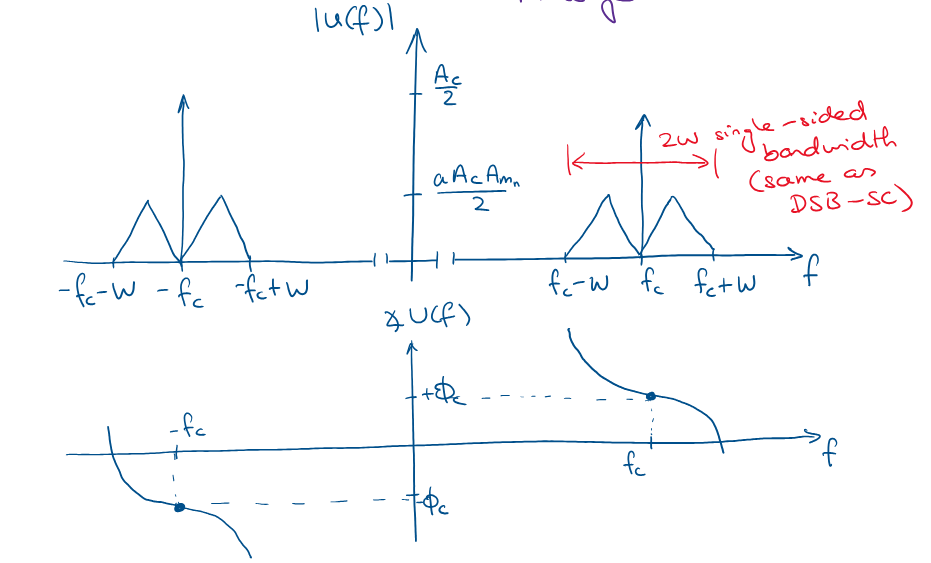 |U(f)|
A_c/2
aA_cA_{m_n}/2
2W single-sided
bandwidth
(same as
DSB-SC)
-f_c-W -f_c -f_c+W
f_c-W f_c f_c+W f
∡U(f)
+Φ_c
-f_c
f_c f
-ϕ_c